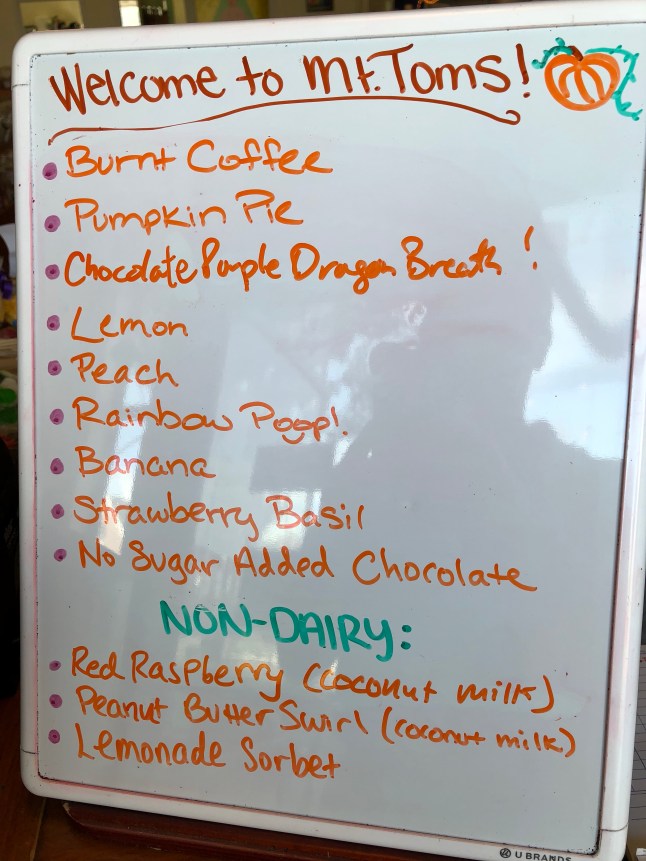 Welcome to Mt. Toms!
• Burnt Coffee
• Pumpkin Pie
• Chocolate Purple Dragon Breath!
• Lemon
• Peach
• Rainbow Poop!
• Banana
• Strawberry Basil
• No Sugar Added Chocolate
NON-DAIRY:
• Red Raspberry (coconut milk)
• Peanut Butter Swirl (coconut milk)
• Lemonade Sorbet
U BRANDS